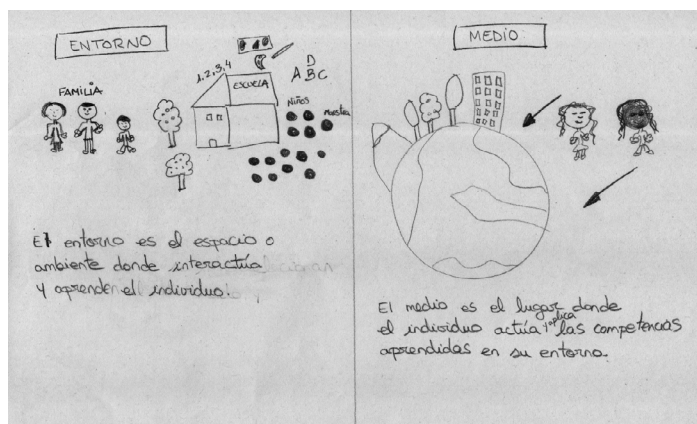 ENTORNO
FAMILIA
1,2,3,4
ESCUELA
D
A B C
Niños
Maestra
El entorno es el espacio o
ambiente donde interactúa
y aprenden el individuo.
MEDIO
El medio es el lugar donde
el individuo actúa y aplica las competencias
aprendidas en su entorno.